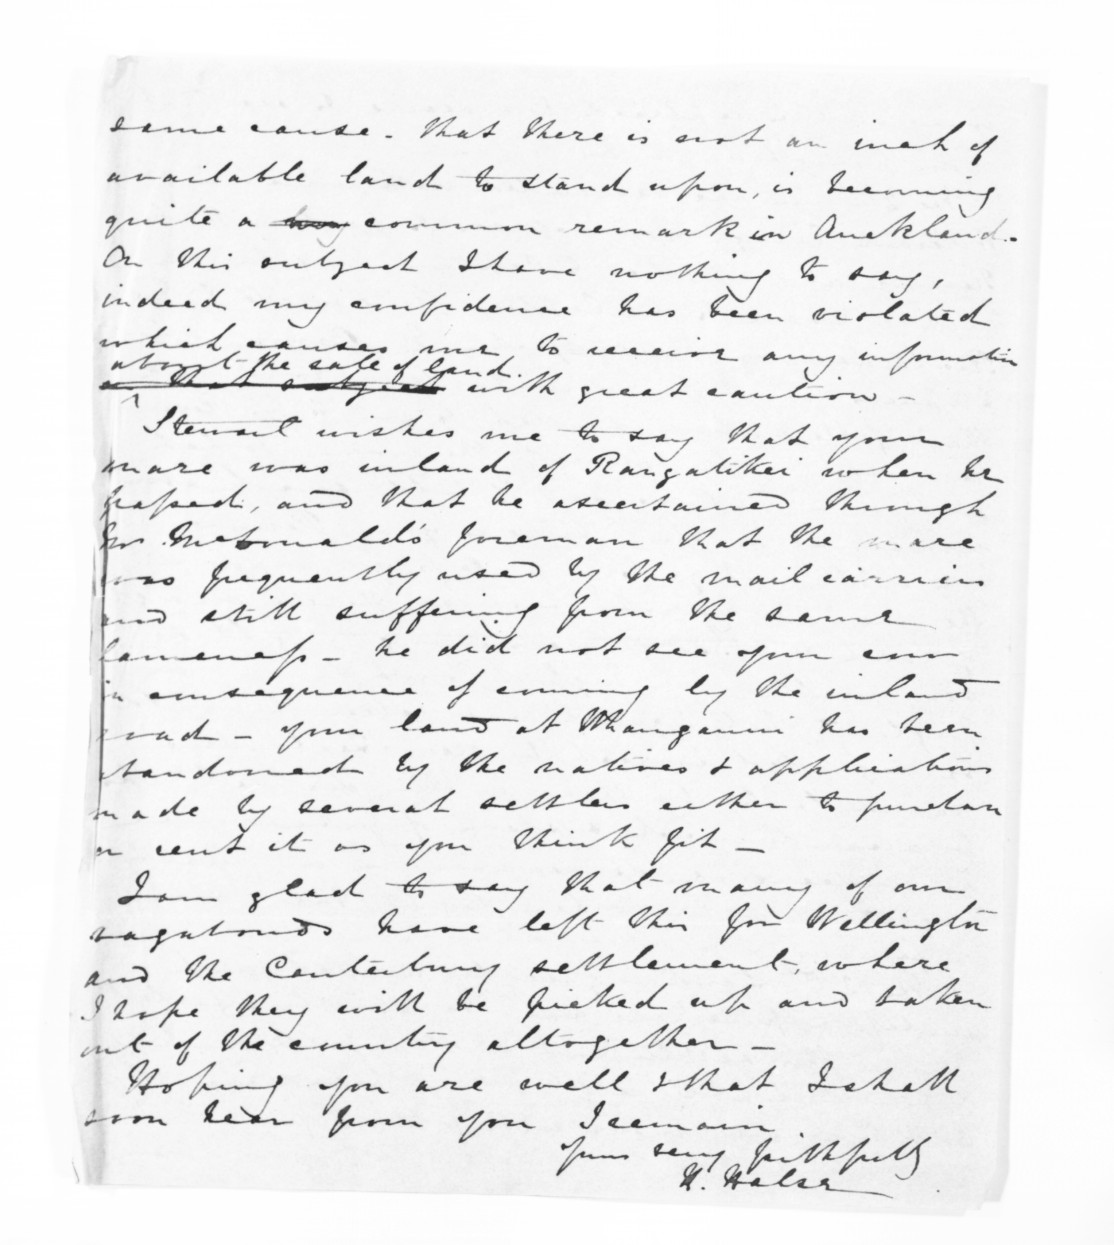 same cause - that there is not an inch of
available land to stand upon, is becoming
quite a common remark in Auckland.-
On this subject I have nothing to say,
indeed my confidence has been violated
which causes me to receive any information
about the sale of land.
on that subject with great caution -
Stewart wishes me to say that your
mare was inland of Rangatikei when he
passed, and that he ascertained through
Mr McDonald's foreman that the mare
was frequently used by the mail carriers
and still suffering from the same
lameness - he did not see your cow
in consequence of coming by the inland
road - your land at Whanganui has been
abandoned by the natives & applications
made by several settlers either to purchase
or rent it as you think fit -
I am glad to say that many of our
vagabonds have left this for Wellington
and the Canterbury settlement, where
I hope they will be picked up and taken
out of the country altogether -
Hoping you are well & that I shall
soon hear from you I remain
Yours very faithfully
H. Halse